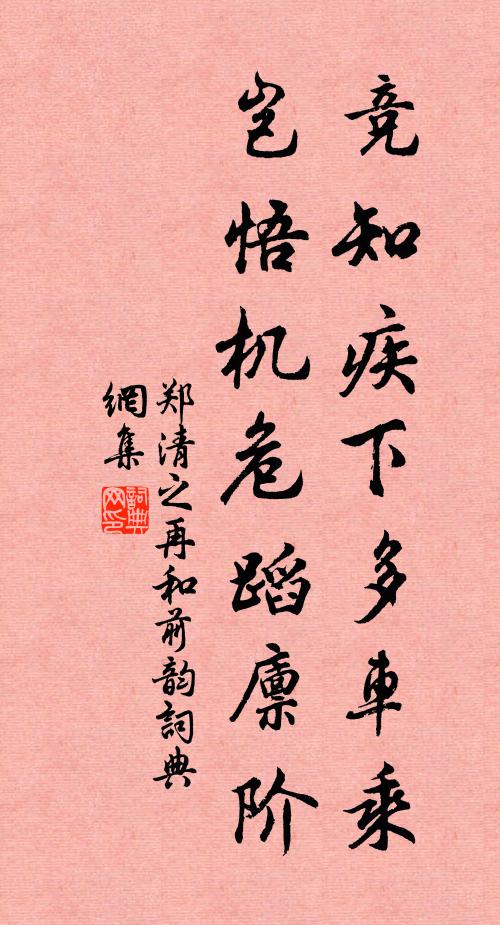 竞知疾下多车乘
岂悟机危蹈廪阶
郑清之再和前韵词典
网集
詞典
网印